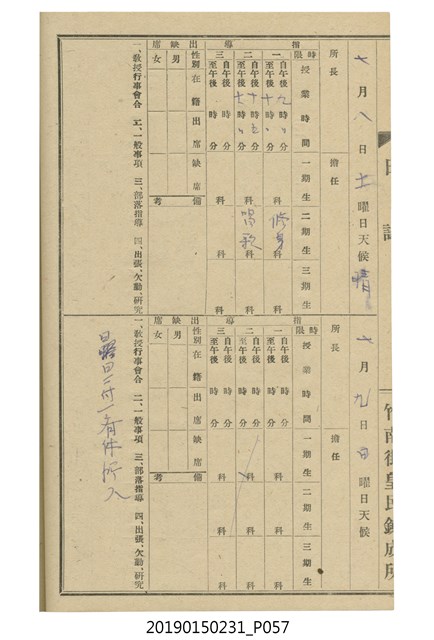 日誌
竹南街皇民鍊成所
七月八日土曜日天候晴
所長 擔任
指導
時限 授業時間 一期生 二期生 三期生
一 自午後九時分 至午後十時分 科 修身科 科
二 自午後十時十五分 至午後十一時分 科 唱歌科 科
三 自午後時分 至午後時分 科 科 科
出缺席
性別 在籍 出席 缺席 備考
男
女
一、教授行事會合 二、一般事項 三、部落指導 四、出張、欠勤、研究
七月九日日曜日天候
所長 擔任
指導
時限 授業時間 一期生 二期生 三期生
一 自午後時分 至午後時分 科 科 科
二 自午後時分 至午後時分 科 科 科
三 自午後時分 至午後時分 科 科 科
出缺席
性別 在籍 出席 缺席 備考
男
女
一、教授行事會合 二、一般事項 三、部落指導 四、出張、欠勤、研究
20190150231_P057